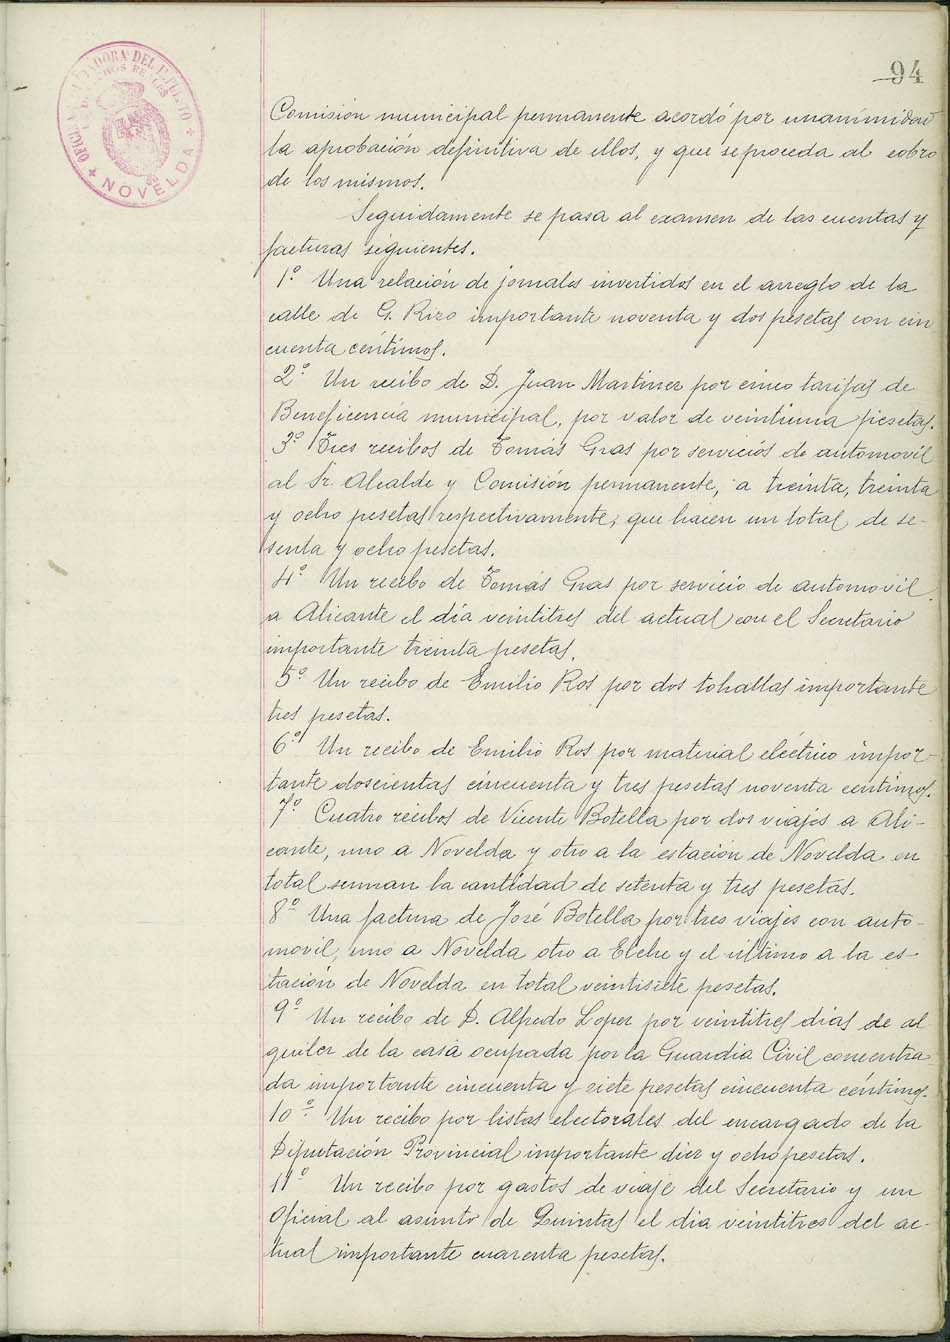 94
OFICINA LIQUIDADORA DEL IMPUESTO
DE DERECHOS REALES
NOVELDA
Comisión municipal permanente acordó por unanimidad
la aprobación definitiva de ellos, y que se proceda al cobro
de los mismos.
Seguidamente se pasa al examen de las cuentas y
facturas siguientes.
1º Una relación de jornales invertidos en el arreglo de la
calle de G. Rizo importante noventa y dos pesetas con cin
cuenta céntimos.
2º Un recibo de D. Juan Martinez por cinco tarifas de
Beneficencia municipal, por valor de veintiuna pesetas.
3º Tres recibos de Tomás Gras por servicios de automovil
al Sr. Alcalde y Comisión permanente, a treinta, treinta
y ocho pesetas respectivamente, que hacen un total de se-
senta y ocho pesetas.
4º Un recibo de Tomás Gras por servicio de automovil
a Alicante el día veintitres del actual con el Secretario
importante treinta pesetas.
5º Un recibo de Emilio Ros por dos tohallas importante
tres pesetas.
6º Un recibo de Emilio Ros por material eléctrico impor-
tante doscientas cincuenta y tres pesetas noventa centimos.
7º Cuatro recibos de Vicente Botella por dos viajes a Ali-
cante, uno a Novelda y otro a la estación de Novelda en
total suman la cantidad de setenta y tres pesetas.
8º Una factura de José Botella por tres viajes con auto-
movil, uno a Novelda otro a Elche y el último a la es-
tación de Novelda en total veintisiete pesetas.
9º Un recibo de D. Alfredo Lopez por veintitres días de al
quiler de la casa ocupada por la Guardia Civil concentra-
da importante cincuenta y siete pesetas cincuenta céntimos.
10º Un recibo por listas electorales del encargado de la
Diputación Provincial importante diez y ocho pesetas.
11º Un recibo por gastos de viaje del Secretario y un
Oficial al asunto de Quintas el dia veintitres del ac-
tual importante cuarenta pesetas.